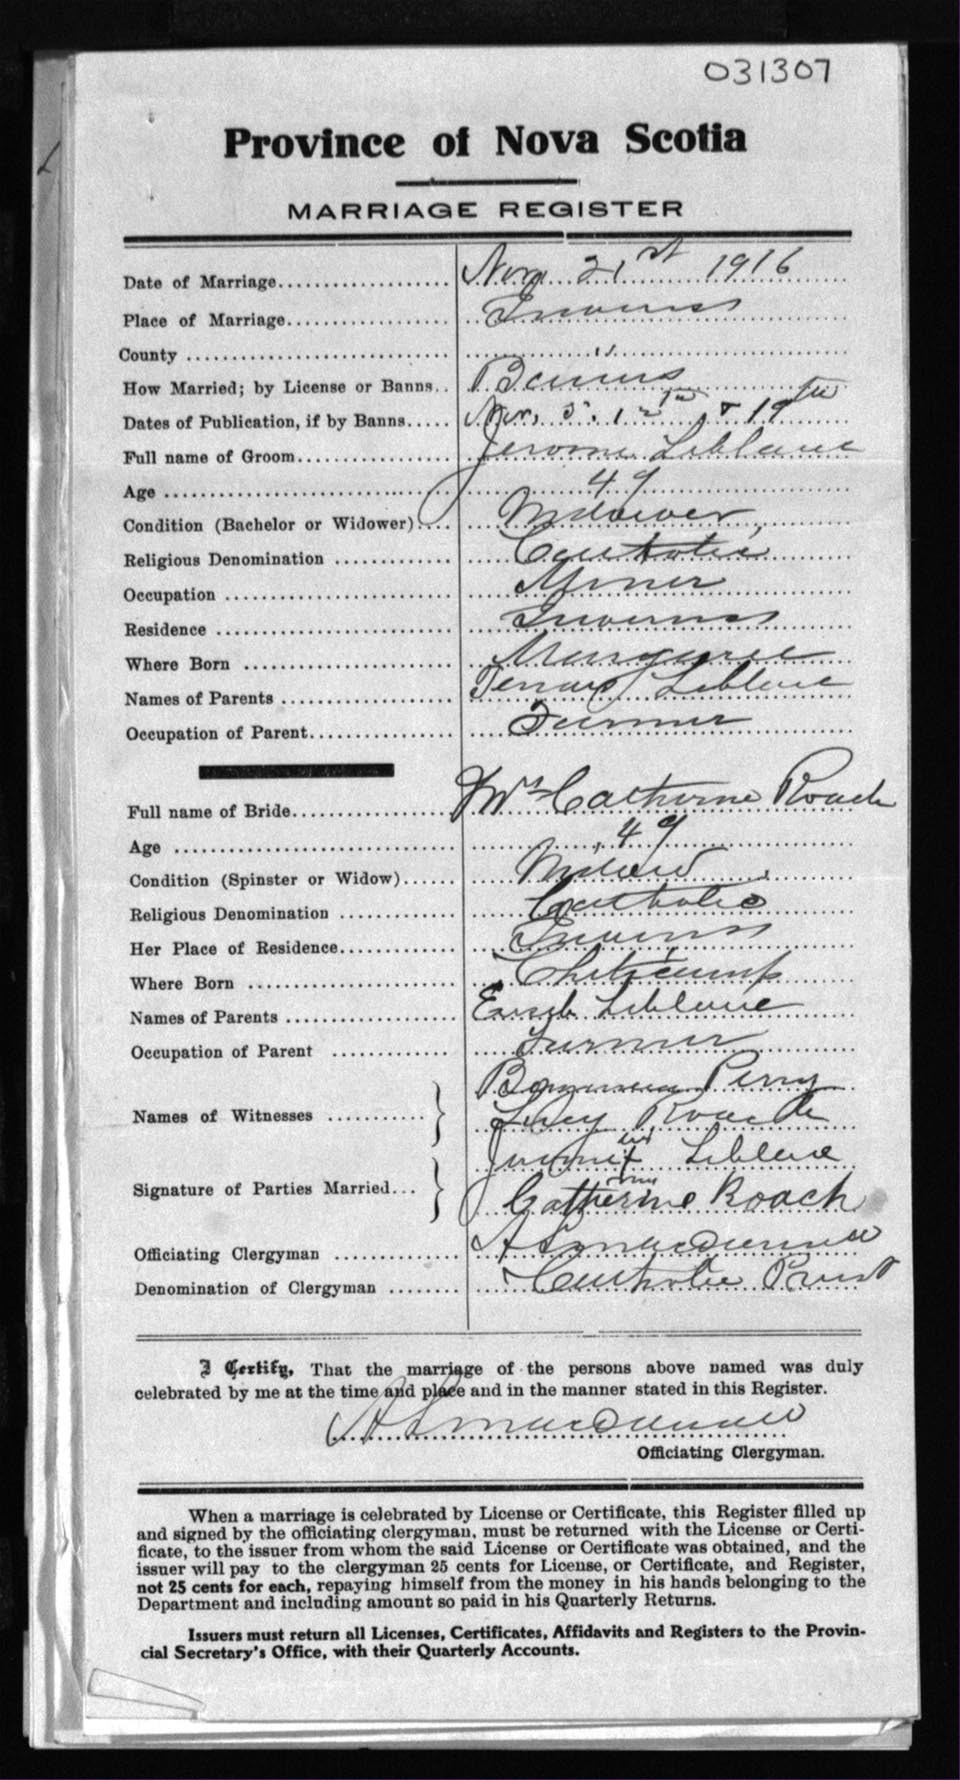 031307
Province of Nova Scotia
MARRIAGE REGISTER
Date of Marriage.................... Nov. 21st 1916
Place of Marriage.................. Inverness
County .............................. "
How Married; by License or Banns.. Banns
Dates of Publication, if by Banns..... Nov. 5. 12th & 19th
Full name of Groom.................. Jerome Leblanc
Age .............................. 49
Condition (Bachelor or Widower).... Widower
Religious Denomination ............ Catholic
Occupation ........................ Miner
Residence ......................... Inverness
Where Born ....................... Margaree
Names of Parents .................. Leblanc
Occupation of Parent............... Farmer
Full name of Bride.................. Mrs Catherine Roach
Age .............................. 49
Condition (Spinster or Widow)...... Widow
Religious Denomination ............ Catholic
Her Place of Residence............. Inverness
Where Born ....................... Cheticamp
Names of Parents .................. Leblanc
Occupation of Parent ............ Farmer
Perry
Names of Witnesses ........... } Lucy Roach
Leblanc
Signature of Parties Married... } Catherine Roach
Officiating Clergyman ............ A L MacDonald
Denomination of Clergyman ........ Catholic Priest
I Certify, That the marriage of the persons above named was duly
celebrated by me at the time and place and in the manner stated in this Register.
A L MacDonald
Officiating Clergyman.
When a marriage is celebrated by License or Certificate, this Register filled up
and signed by the officiating clergyman, must be returned with the License or Certi-
ficate, to the issuer from whom the said License or Certificate was obtained, and the
issuer will pay to the clergyman 25 cents for License, or Certificate, and Register,
not 25 cents for each, repaying himself from the money in his hands belonging to the
Department and including amount so paid in his Quarterly Returns.
Issuers must return all Licenses, Certificates, Affidavits and Registers to the Provin-
cial Secretary's Office, with their Quarterly Accounts.